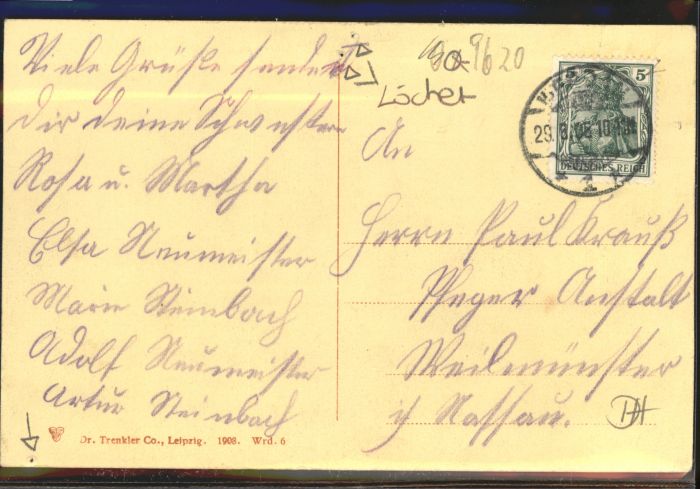 Viele Grüße sendet
dir deine Schwestern
Rosa u. Martha
Elsa Neumeister
Marie Steinbach
Adolf Neumeister
Artur Steinbach
Dr. Trenkler Co., Leipzig. 1908. Wrd. 6
9620
Löcher
5
DEUTSCHES REICH
29.
1
An
Herrn Paul Krauß
Pfleger Anstalt
Weilmünster
i/ Nassau.